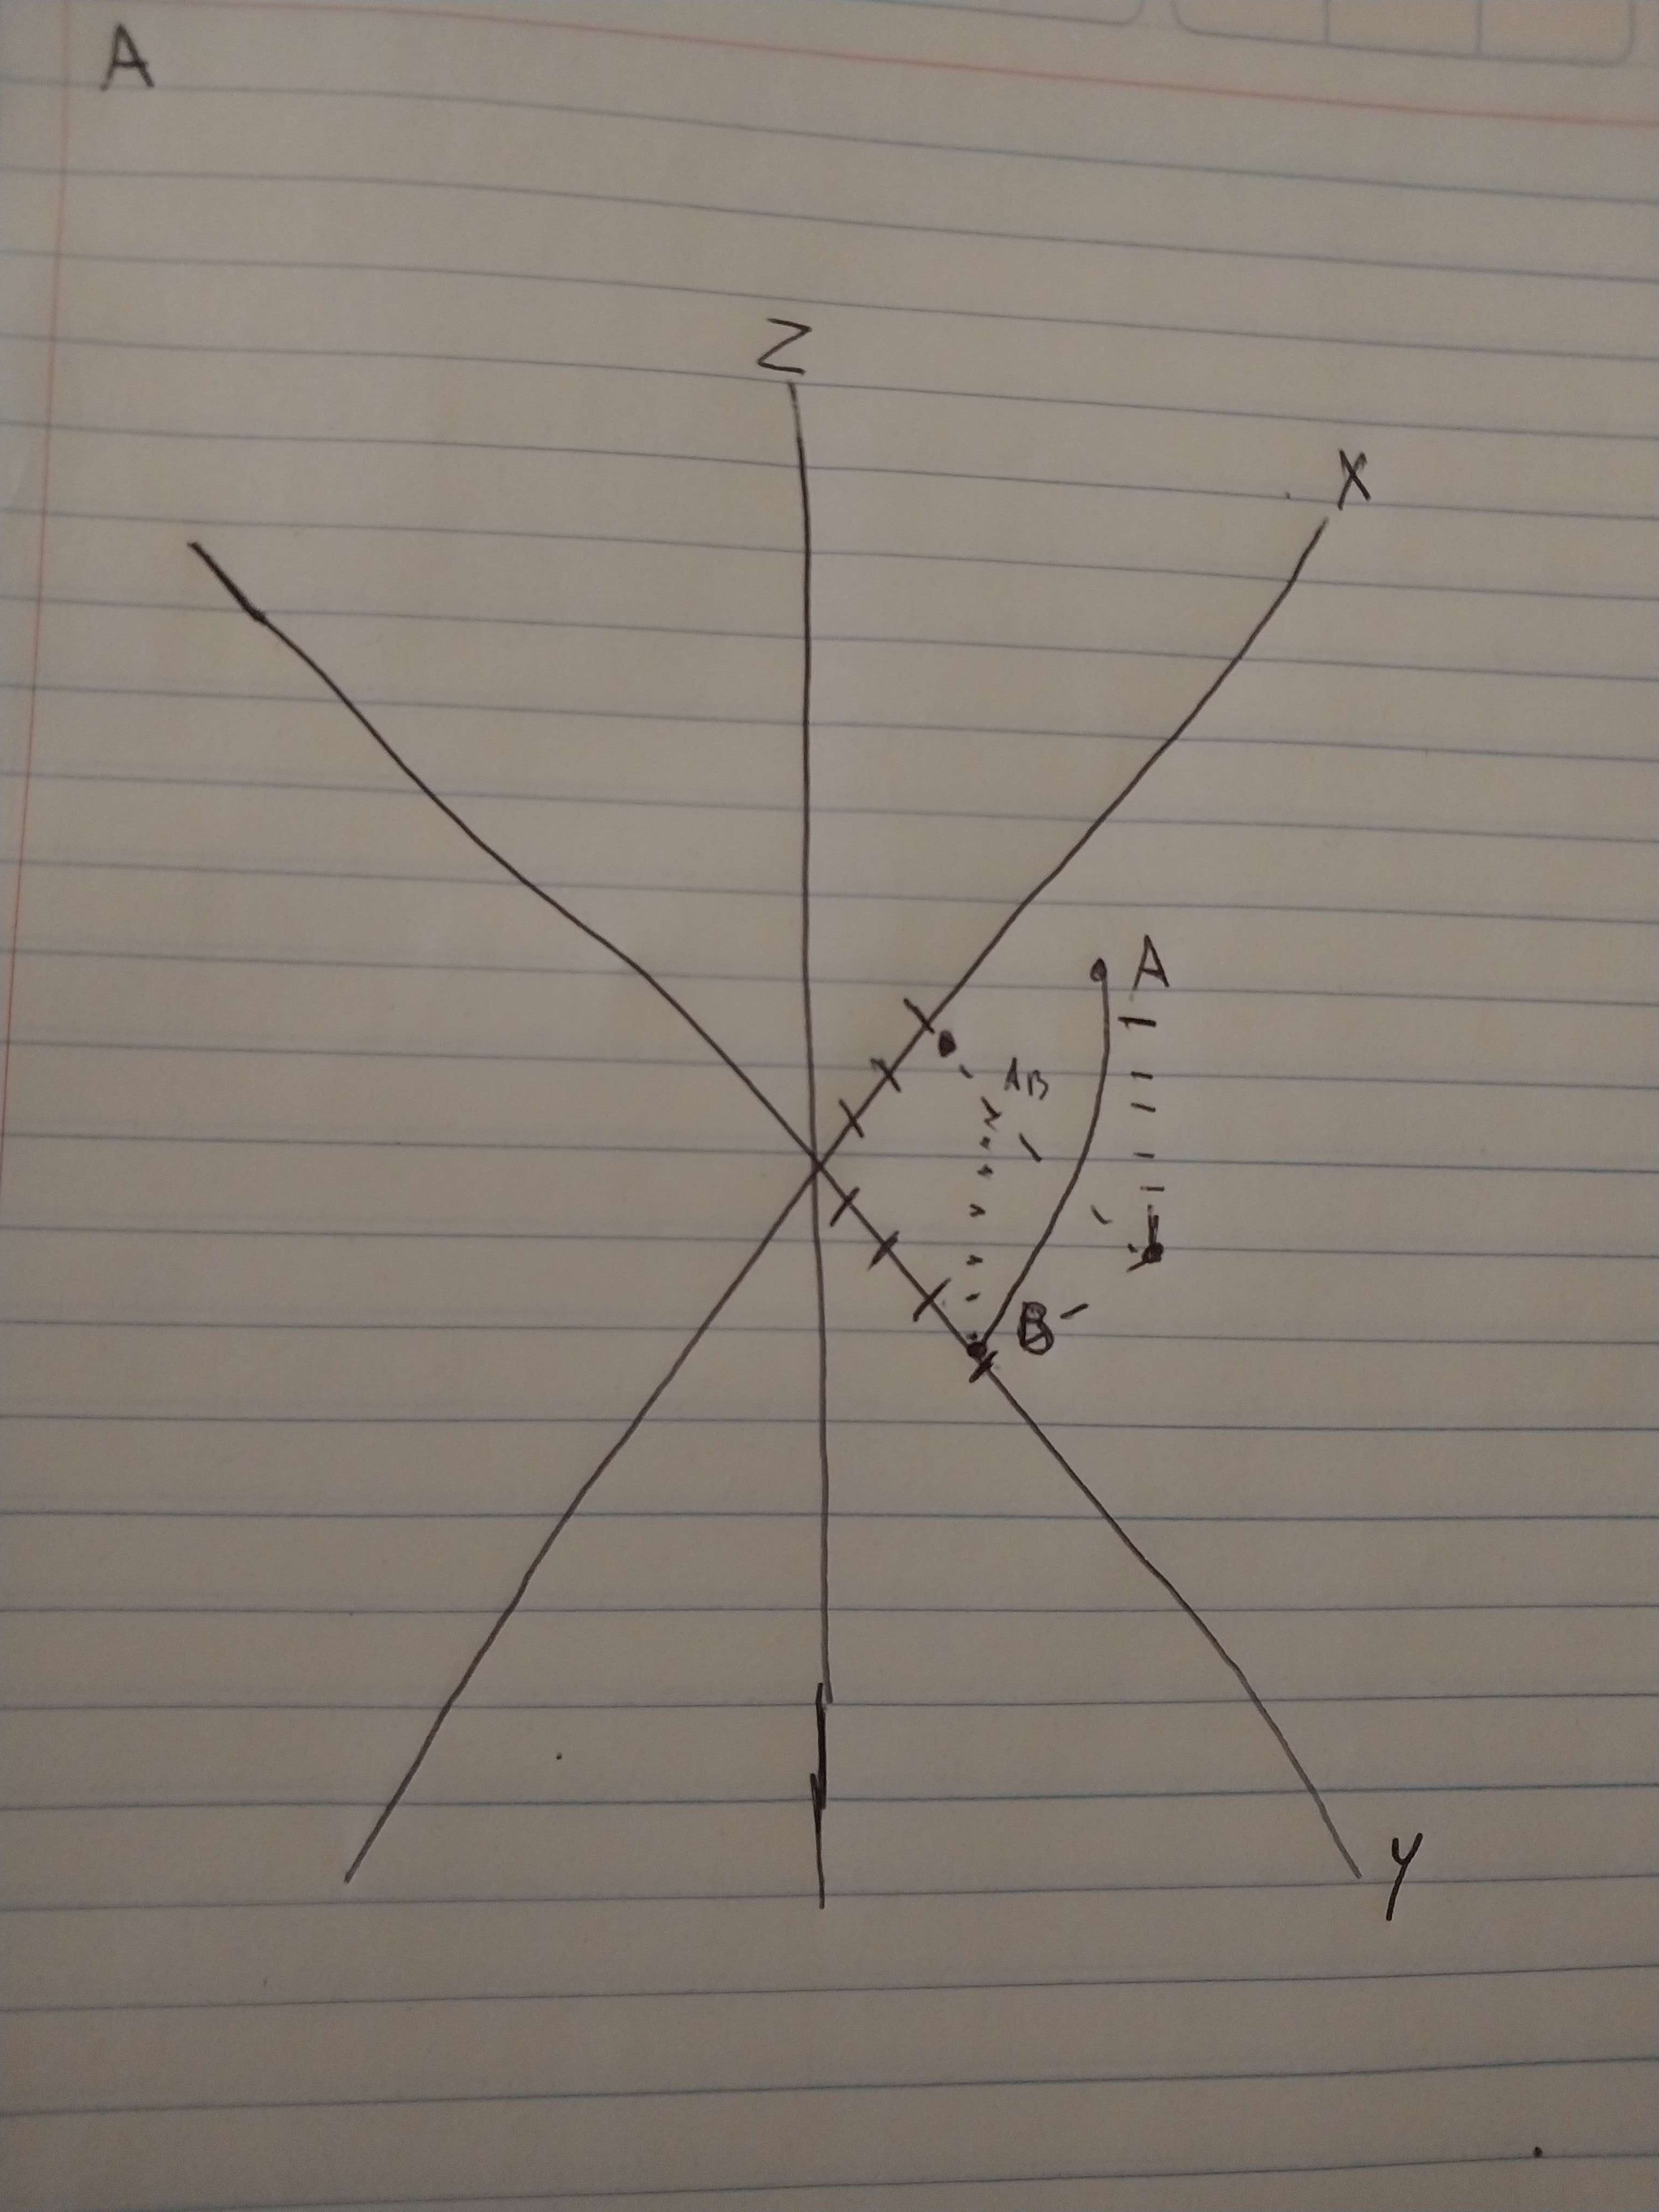 A
Z
X
A
AB
B
Y